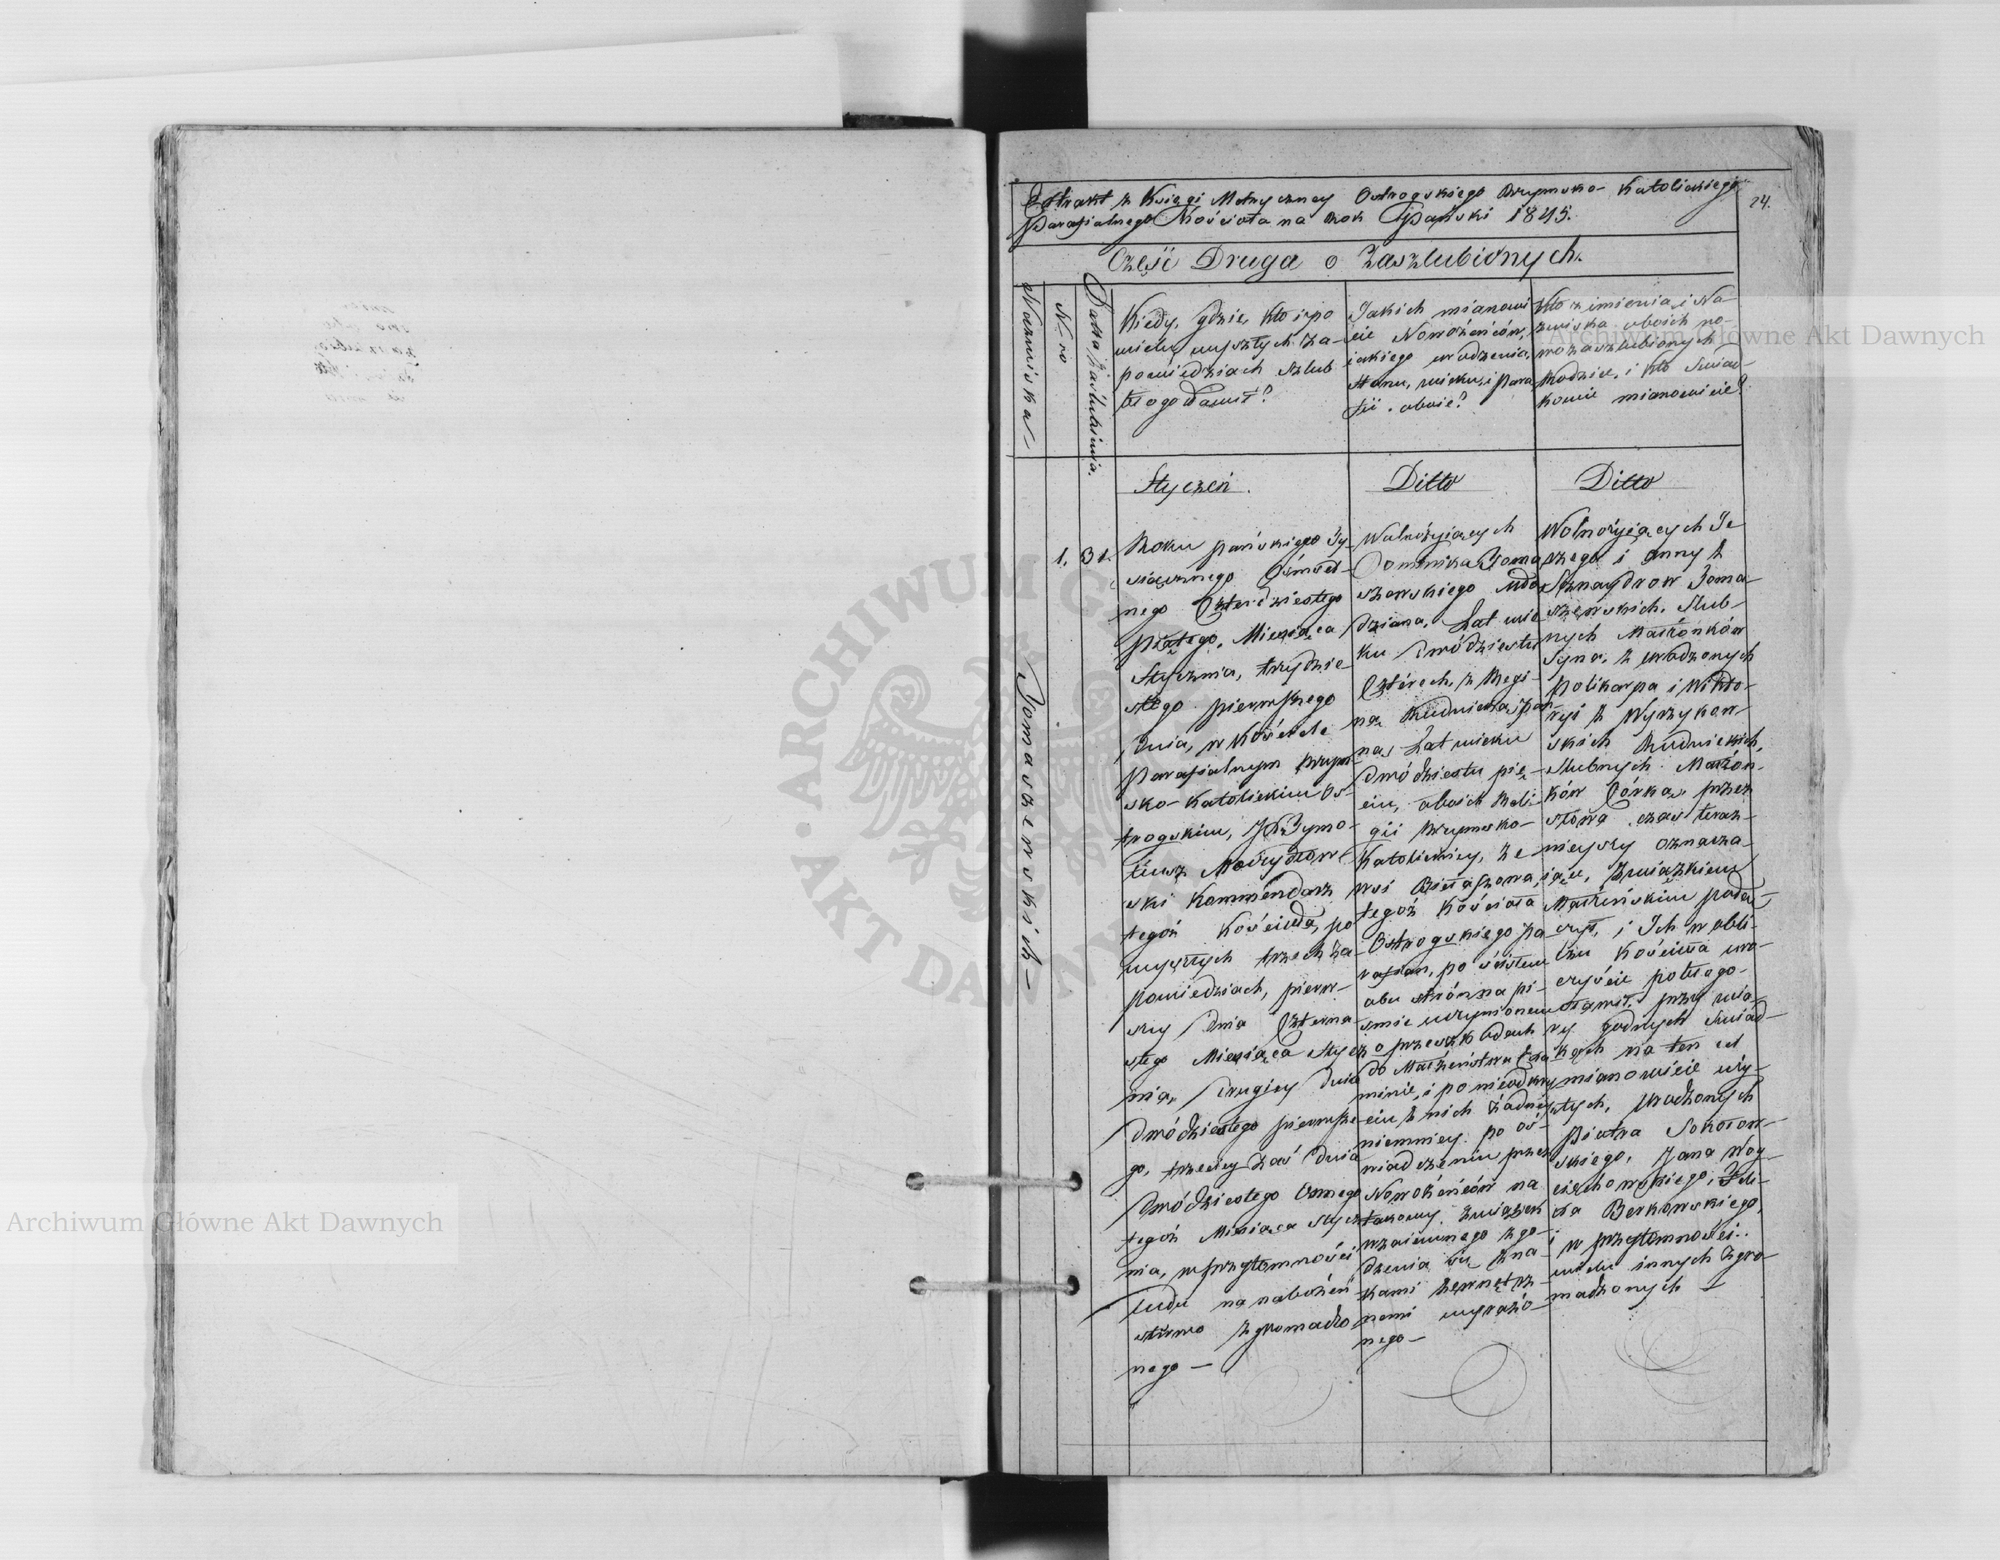 24.
Extrakt z Księgi Metryczney Ostrogskiego Rzymsko-Katolickiego
Parafialnego Kościoła na Rok Pański 1845.
Część Druga o Zaszlubionych.
Nazwiska
N-ro
Datta Zaślubienia.
Kiedy, gdzie, kto i po
wielu wyszłych Za-
powiedziach Szlub
błogosławił?
Jakich mianowi
cie Nowożeńców,
jakiego urodzenia,
stanu, wieku, i Para
fii oboie?
Kto z imienia, i Na-
zwiska oboich no-
wozaszlubionych
Rodzice, i kto Świad-
kowie mianowicie?
Styczeń.
Ditto
Ditto
Tomaszewskich
1.
31.
Roku Pańskiego Ty-
siącznego Ósmset-
nego Czterdziestego
Piątego, Miesiąca
Stycznia, trzydzie
stego pierwszego
Dnia, w Kościele
Parafialnym Rzym
sko-Katolickim Os-
trogskim, JX Tymo-
teusz
ski Kommendarz
tegoż Kościoła, po
wyszłych trzech Za-
powiedziach, pierw-
szey Dnia Czterna-
stego Miesiąca Stycz
nia, Drugiey Dnia
Dwódziestego pierwsze
go, trzeciey Zaś Dnia
Dwódziestego Osmego
tegoż Miesiąca Stycz
nia, w przytomności
Ludu na nabożeń
stwo Zgromadzo
nego —
Wolnożyjących
Dominika Toma
szewskiego mło
dziana, Lat wie
ku Dwódziestu
Cztérech, z Regi-
ną Rudnicką pan
ną, Lat wieku
Dwódziestu pię-
ciu, oboich Reli
gii Rzymsko-
Katolickiey, ze
wsi
tegoż Kościoła
Ostrogskiego Pa
rafian, po ścisłem
obu stronna pi-
śmie uczynionem
o przeszkodach
do Małżeństwa Exa
minie, i po nieodkry
ciu z nich żadnéy
niemniey po oś-
wiadczeniu przez
Nowożeńców na
takowy Związek
wzaiemnego zgo-
dzenia się zna-
kami zewnętrz-
nemi wyrażo-
nego —
Wolnożyiących Je
rzego i Anny z
Sznaydrow Toma-
szewskich. Slub-
nych Małżonków
Syna. z urodzonych
Polikarpa i Wikto-
ryi z Wyrzykow-
skich Rudnickich,
Slubnych Małżon-
ków Córką, przez
słowa czas teraz-
nieyszy oznacza-
iące, Związkiem
Małżeńskim połą-
czył, i Ich w obli-
czu Kościoła uro-
czyście pobłogo-
sławił, przy wia-
ry godnych Świad-
kach na ten cel
mianowicie uży-
tych, Urodzonych
Piotra Sokołow-
skiego, Jana Woy-
ciechowskiego,
Berkowskiego,
i w przytomności
wielu innych Zgro-
madzonych —
ARCHIWUM GŁÓWNE AKT DAWNYCH
Archiwum Główne Akt Dawnych
Archiwum Główne Akt Dawnych